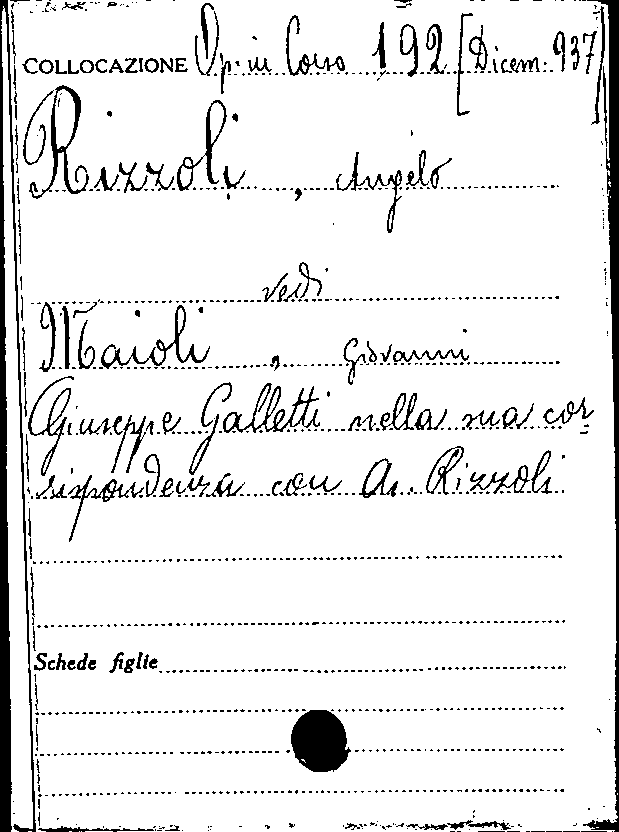 COLLOCAZIONE Op. in Corso 192 [Dicem. 937]
Rizzoli, Angelo
vedi
Maioli, Giovanni
Giuseppe Galletti nella sua cor-
rispondenza con A. Rizzoli
Schede figlie